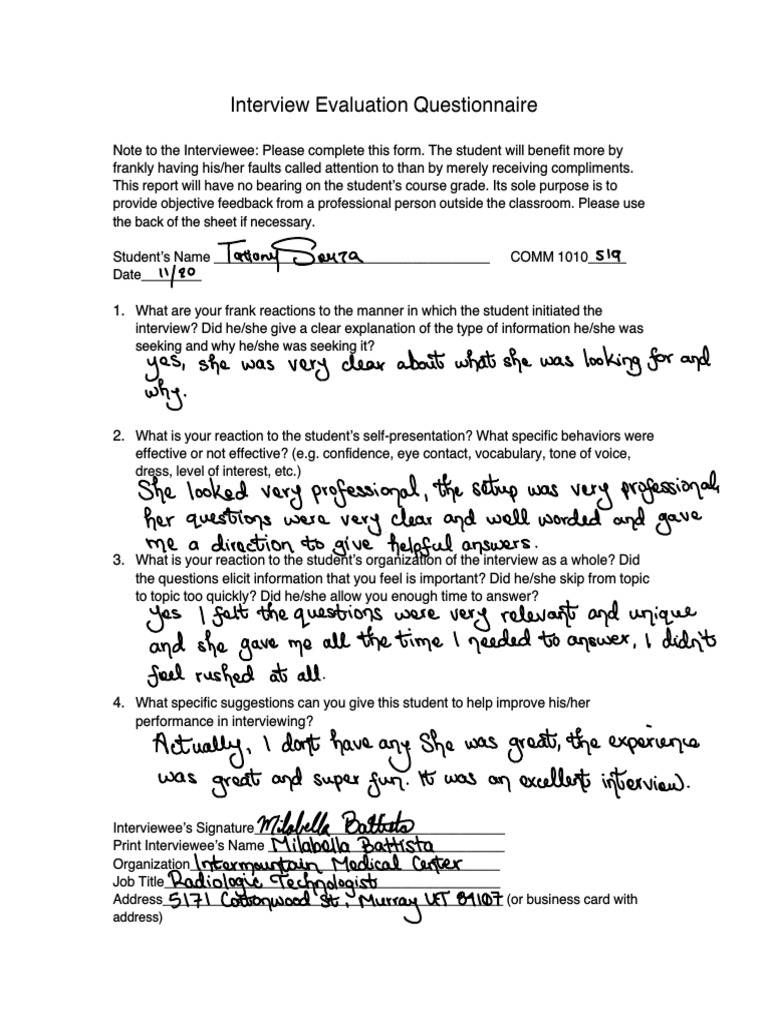 Interview Evaluation Questionnaire
Note to the Interviewee: Please complete this form. The student will benefit more by
frankly having his/her faults called attention to than by merely receiving compliments.
This report will have no bearing on the student's course grade. Its sole purpose is to
provide objective feedback from a professional person outside the classroom. Please use
the back of the sheet if necessary.
Student's Name Tattony Souza COMM 1010 519
Date 11/20
1. What are your frank reactions to the manner in which the student initiated the
interview? Did he/she give a clear explanation of the type of information he/she was
seeking and why he/she was seeking it?
yes, she was very clear about what she was looking for and
why.
2. What is your reaction to the student's self-presentation? What specific behaviors were
effective or not effective? (e.g. confidence, eye contact, vocabulary, tone of voice,
dress, level of interest, etc.)
She looked very professional, the setup was very professional,
her questions were very clear and well worded and gave
me a direction to give helpful answers.
3. What is your reaction to the student's organization of the interview as a whole? Did
the questions elicit information that you feel is important? Did he/she skip from topic
to topic too quickly? Did he/she allow you enough time to answer?
Yes I felt the questions were very relevant and unique
and she gave me all the time I needed to answer, I didn't
feel rushed at all.
4. What specific suggestions can you give this student to help improve his/her
performance in interviewing?
Actually, I don't have any She was great, the experience
was great and super fun. It was an excellent interview.
Interviewee's Signature Milabella Battista
Print Interviewee's Name Milabella Battista
Organization Intermountain Medical Center
Job Title Radiologic Technologist
Address 5171 Cottonwood St, Murray UT 84107 (or business card with
address)